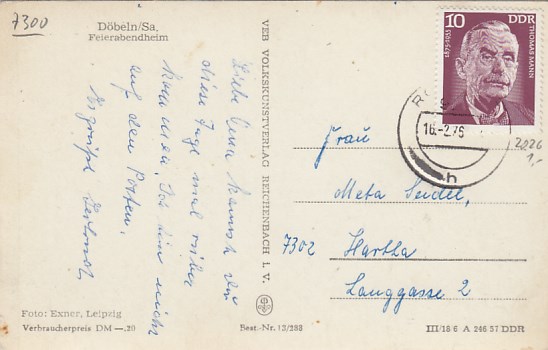 7300
Döbeln/Sa.
Feierabendheim
Liebe Erna kannst du
diese Tage mal rüber
kommen. Ich bin nicht
auf den Posten.
Es grüßt
VEB VOLKSKUNSTVERLAG REICHENBACH I. V.
10 DDR
1875-1955 THOMAS MANN
16.-2.76
h
2026
1,-
Frau
Meta Seidel,
7302 Hartha
Langgasse 2
Foto: Exner, Leipzig
Verbraucherpreis DM —,20
Best-Nr. 13/288
III/18 6 A 246 57 DDR